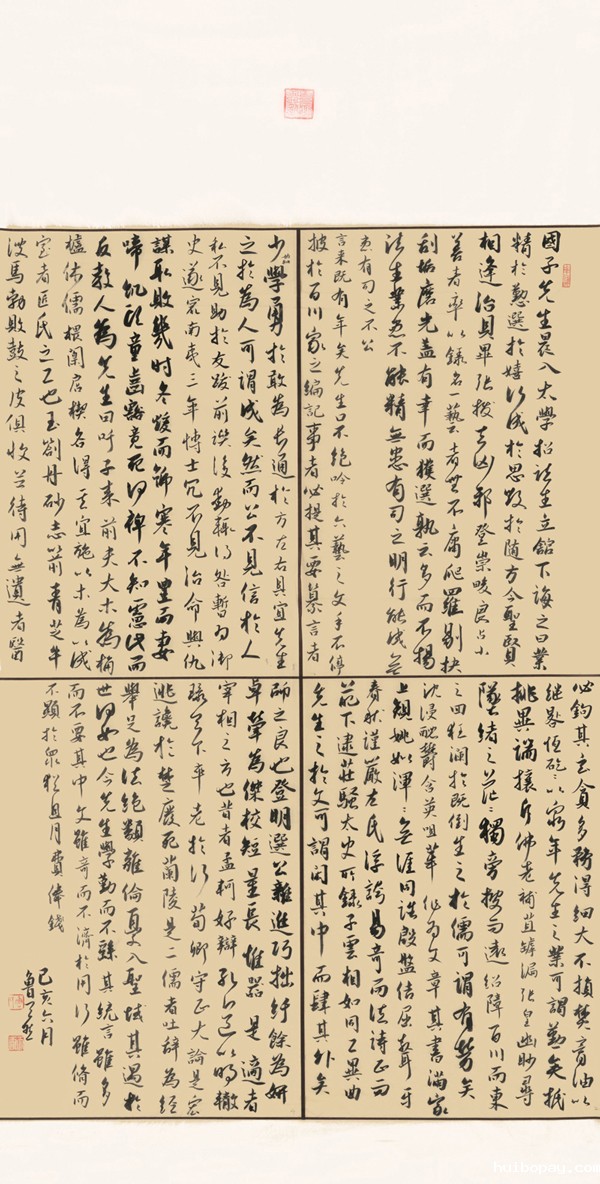 國子先生晨入太學招諸生立館下誨之曰業
精於勤荒於嬉行成於思毀於隨方今聖賢
相逢治具畢張拔去凶邪登崇畯良占小
善者率以錄名一藝云者無不庸爬羅剔抉
刮垢磨光蓋有幸而獲選孰云多而不揚
諸生業患不能精無患有司之明行能成無
患有司之不公
言未既有年矣先生口不絕吟於六藝之文手不停
披於百川家之編記事者必提其要纂言者
必鉤其玄貪多務得細大不捐焚膏油以
繼晷恆矻矻以窮年先生之業可謂勤矣抵
排異端攘斥佛老補苴罅漏張皇幽眇尋
墜緒之茫茫獨旁搜而遠紹障百川而東
之回狂瀾於既倒生之於儒可謂有勞矣
沈浸醲郁含英咀華作為文章其書滿家
上規姚姒渾渾無涯周誥殷盤佶屈聱牙
春秋謹嚴左氏浮誇易奇而法詩正而
葩下逮莊騷太史所錄子雲相如同工異曲
先生之於文可謂閎其中而肆其外矣
少學勇於敢為長通於方左右具宜先生
之於為人可謂成矣然而公不見信於人
私不見助於友跋前躓後動輒得咎暫為御
史遂竄南夷三年博士冗不見治命與仇
謀取敗幾時冬煖而號寒年豐而妻
啼飢頭童齒豁竟死何裨不知慮此而
反教人為先生曰吁子來前夫大木為杗
欂侏儒椳闑扂楔各得其宜施以木為以成
室者匠氏之工也玉劄丹砂赤箭青芝牛
溲馬勃敗鼓之皮俱收並待用無遺者醫
師之良也登明選公雜進巧拙紆餘為妍
卓犖為傑校短量長惟器是適者
宰相之方也昔者孟軻好辯孔道以明轍
環天下卒老於行荀卿守正大論是宏
逃讒於楚廢死蘭陵是二儒者吐辭為經
舉足為法絕類離倫優入聖域其遇於
世何如也今先生學勤而不繇其統言雖多
而不要其中文雖奇而不濟於用行雖脩而
不顯於眾猶且月費俸錢
己亥六月
huibopay.com